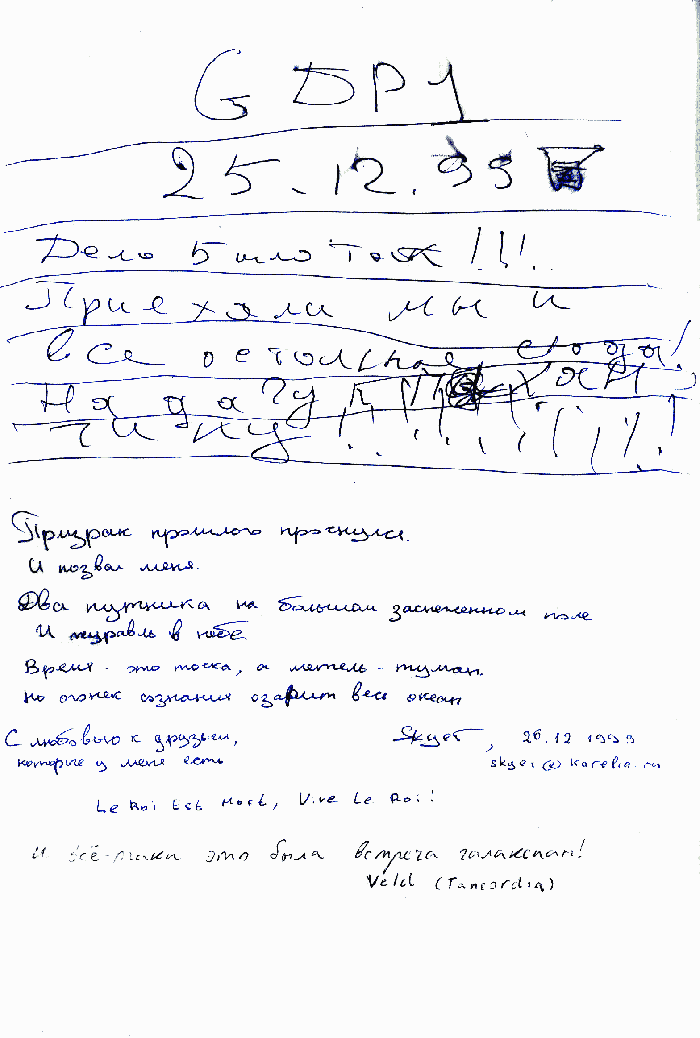 GDPY
25.12.99
Дело было так!!!
Приехали мы и
все остальные сюда!
На дачу к
Призрак прошлого проснулся.
И позвал меня.
Два путника на большом заснеженном поле
И журавль в небе
Время - это тоска, а метель - туман.
Но огонек сознания озарит весь океан
С любовью к друзьям,
которые у меня есть
Skyer, 26.12 1999
skyer@karelia.ru
Le Roi Est Mort, Vive Le Roi!
И всё-таки это была встреча галактик!
Veld (Tancordia)